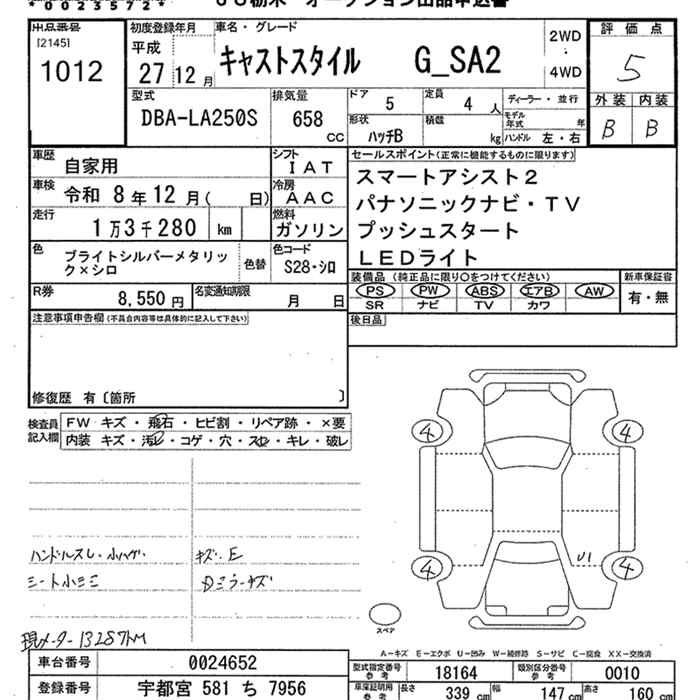 *0023572*
出品番号
[2145]
1012
初度登録年月
平成
27年12月
車名・グレード
キャストスタイル G_SA2
2WD
・
4WD
評価点
5
外装 内装
B B
型式
DBA-LA250S
排気量
658
cc
ドア
5
定員
4人
形状
ハッチB
積載
kg
ディーラー・並行
モデル年式
年
ハンドル 左・右
車歴
自家用
シフト
IAT
車検
令和 8年12月( 日)
冷房
AAC
走行
1万3千280 km
燃料
ガソリン
色
ブライトシルバーメタリック×シロ
色替
色コード
S28・シロ
R券
8,550円
名変通知期限
月 日
セールスポイント(正常に機能するものに限ります)
スマートアシスト2
パナソニックナビ・TV
プッシュスタート
LEDライト
装備品 (純正品に限り○をつけてください)
PS PW ABS エアB AW
SR ナビ TV カワ
新車保証書
有・無
後日品
注意事項申告欄(不具合内容等は具体的に記入して下さい)
修復歴 有〔箇所 〕
検査員記入欄
FW キズ・飛石・ヒビ割・リペア跡・×要
内装 キズ・汚レ・コゲ・穴・スレ・キレ・破レ
ハンドルスレ・小ハゲ
キズ、E
シート小シミ
Dミラーキズ
現メーター13287km
4
4
4
4
U1
スペア
A-キズ E-エクボ U-凹み W-補修跡 S-サビ C-腐食 XX-交換済
車台番号
0024652
登録番号
宇都宮 581 ち 7956
型式指定番号
参考
18164
類別区分番号
参考
0010
車庫証明用
参考
長さ 339 cm
幅 147 cm
高さ 160 cm